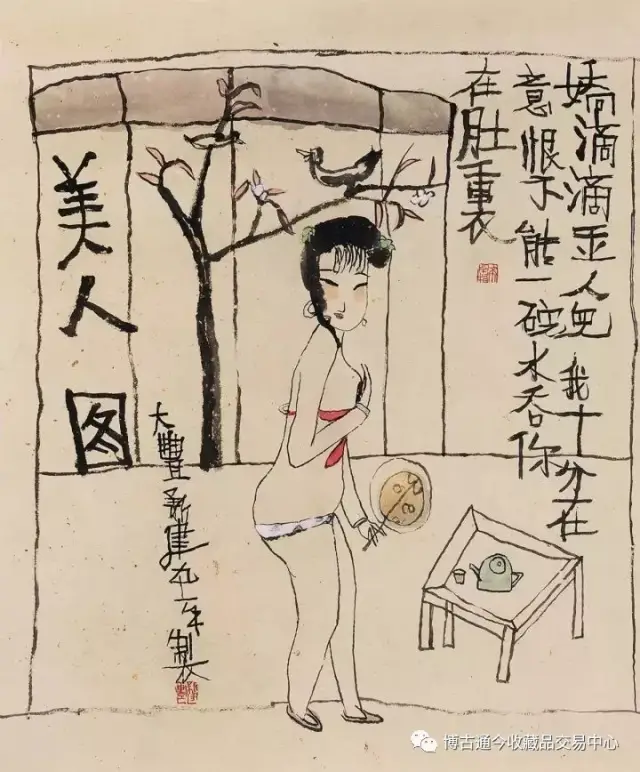 嬌滴滴玉人兒我十分在
意恨不能一碗水吞你
在肚裏
美人图
大豐新建九一年製
博古通今收藏品交易中心